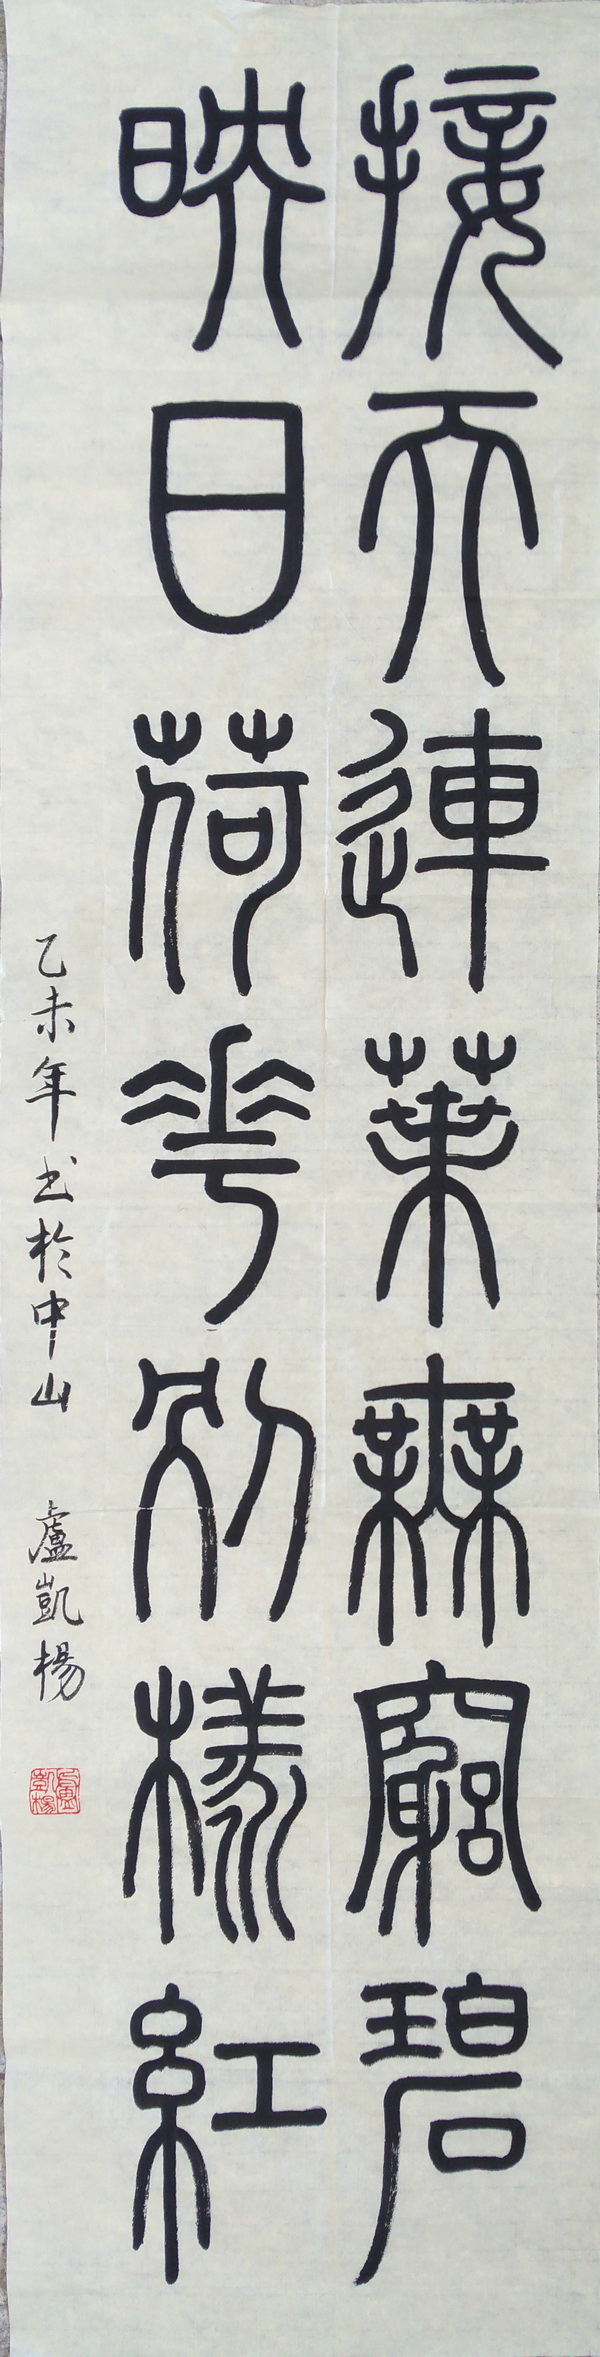 接天連葉無窮碧
映日荷花別樣紅
乙未年书於中山 盧凱楊
盧凱楊